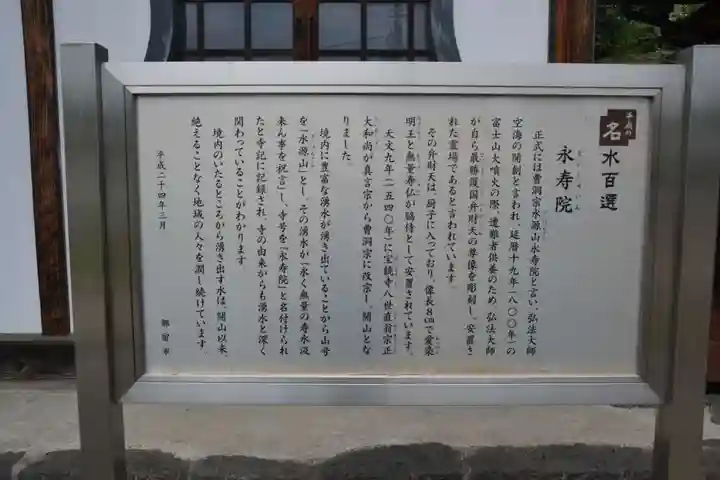 平成の名水百選
永寿院
えいじゅいん
正式には曹洞宗水源山永寿院と言い、弘法大師
空海の開創と言われ、延暦十九年(八〇〇年)の
富士山大噴火の際、遭難者供養のため、弘法大師
が自ら最勝護国弁財天の尊像を彫刻し、安置さ
れた霊場であると言われています。
その弁財天は、厨子に入っており、像長8㎝で愛染
明王と無量寿仏が脇侍として安置されています。
天文九年(一五四〇年)に宝鏡寺八世直翁宗正
大和尚が真言宗から曹洞宗に改宗し、開山とな
りました。
境内に豊富な湧水が湧き出ていることから山号
を「水源山」とし、その湧水が「永く無量の寿水汲
来ん事を祝言」し、寺号を「永寿院」と名付けられ
たと寺記に記録され、寺の由来からも湧水と深く
関わっていることがわかります。
境内のいたるところから湧き出す水は、開山以来、
絶えることなく地域の人々を潤し続けています。
平成二十四年三月
都留市